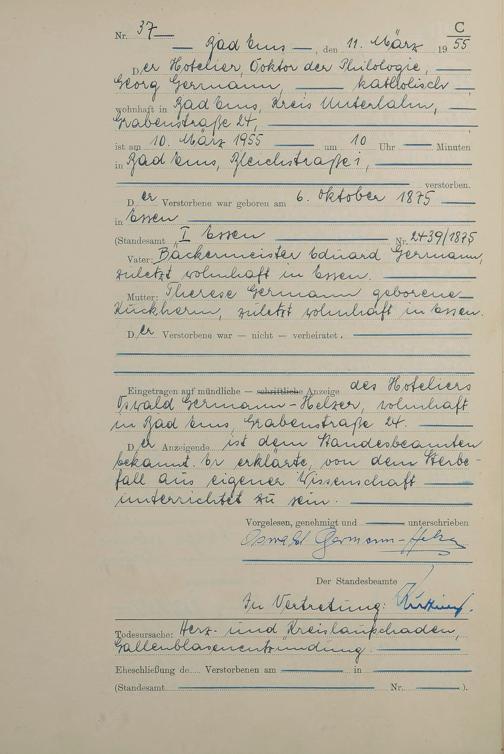 C
Nr. 37
Bad Ems, den 11. März 1955
Der Hotelier, Doktor der Philologie,
Georg Germann, katholisch
wohnhaft in Bad Ems, Kreis Unterlahn,
Grabenstraße 24,
ist am 10. März 1955 um 10 Uhr Minuten
in Bad Ems, Bleichstraße 1,
verstorben.
Der Verstorbene war geboren am 6. Oktober 1875
in Essen
(Standesamt I Essen Nr. 2439/1875
Vater: Bäckermeister Eduard Germann,
zuletzt wohnhaft in Essen.
Mutter: Therese Germann geborene
zuletzt wohnhaft in Essen.
Der Verstorbene war — nicht — verheiratet.
Eingetragen auf mündliche — schriftliche Anzeige des Hoteliers
Oswald Germann-Helzer, wohnhaft
in Bad Ems, Grabenstraße 24.
Der Anzeigende ist dem Standesbeamten
bekannt. Er erklärte, von dem Sterbe-
fall aus eigener Wissenschaft
unterrichtet zu sein.
Vorgelesen, genehmigt und unterschrieben
Oswald Germann-
Der Standesbeamte
In Vertretung:
Todesursache: Herz- und Kreislaufschaden,
Gallenblasenentzündung
Eheschließung de Verstorbenen am in
(Standesamt Nr. ).